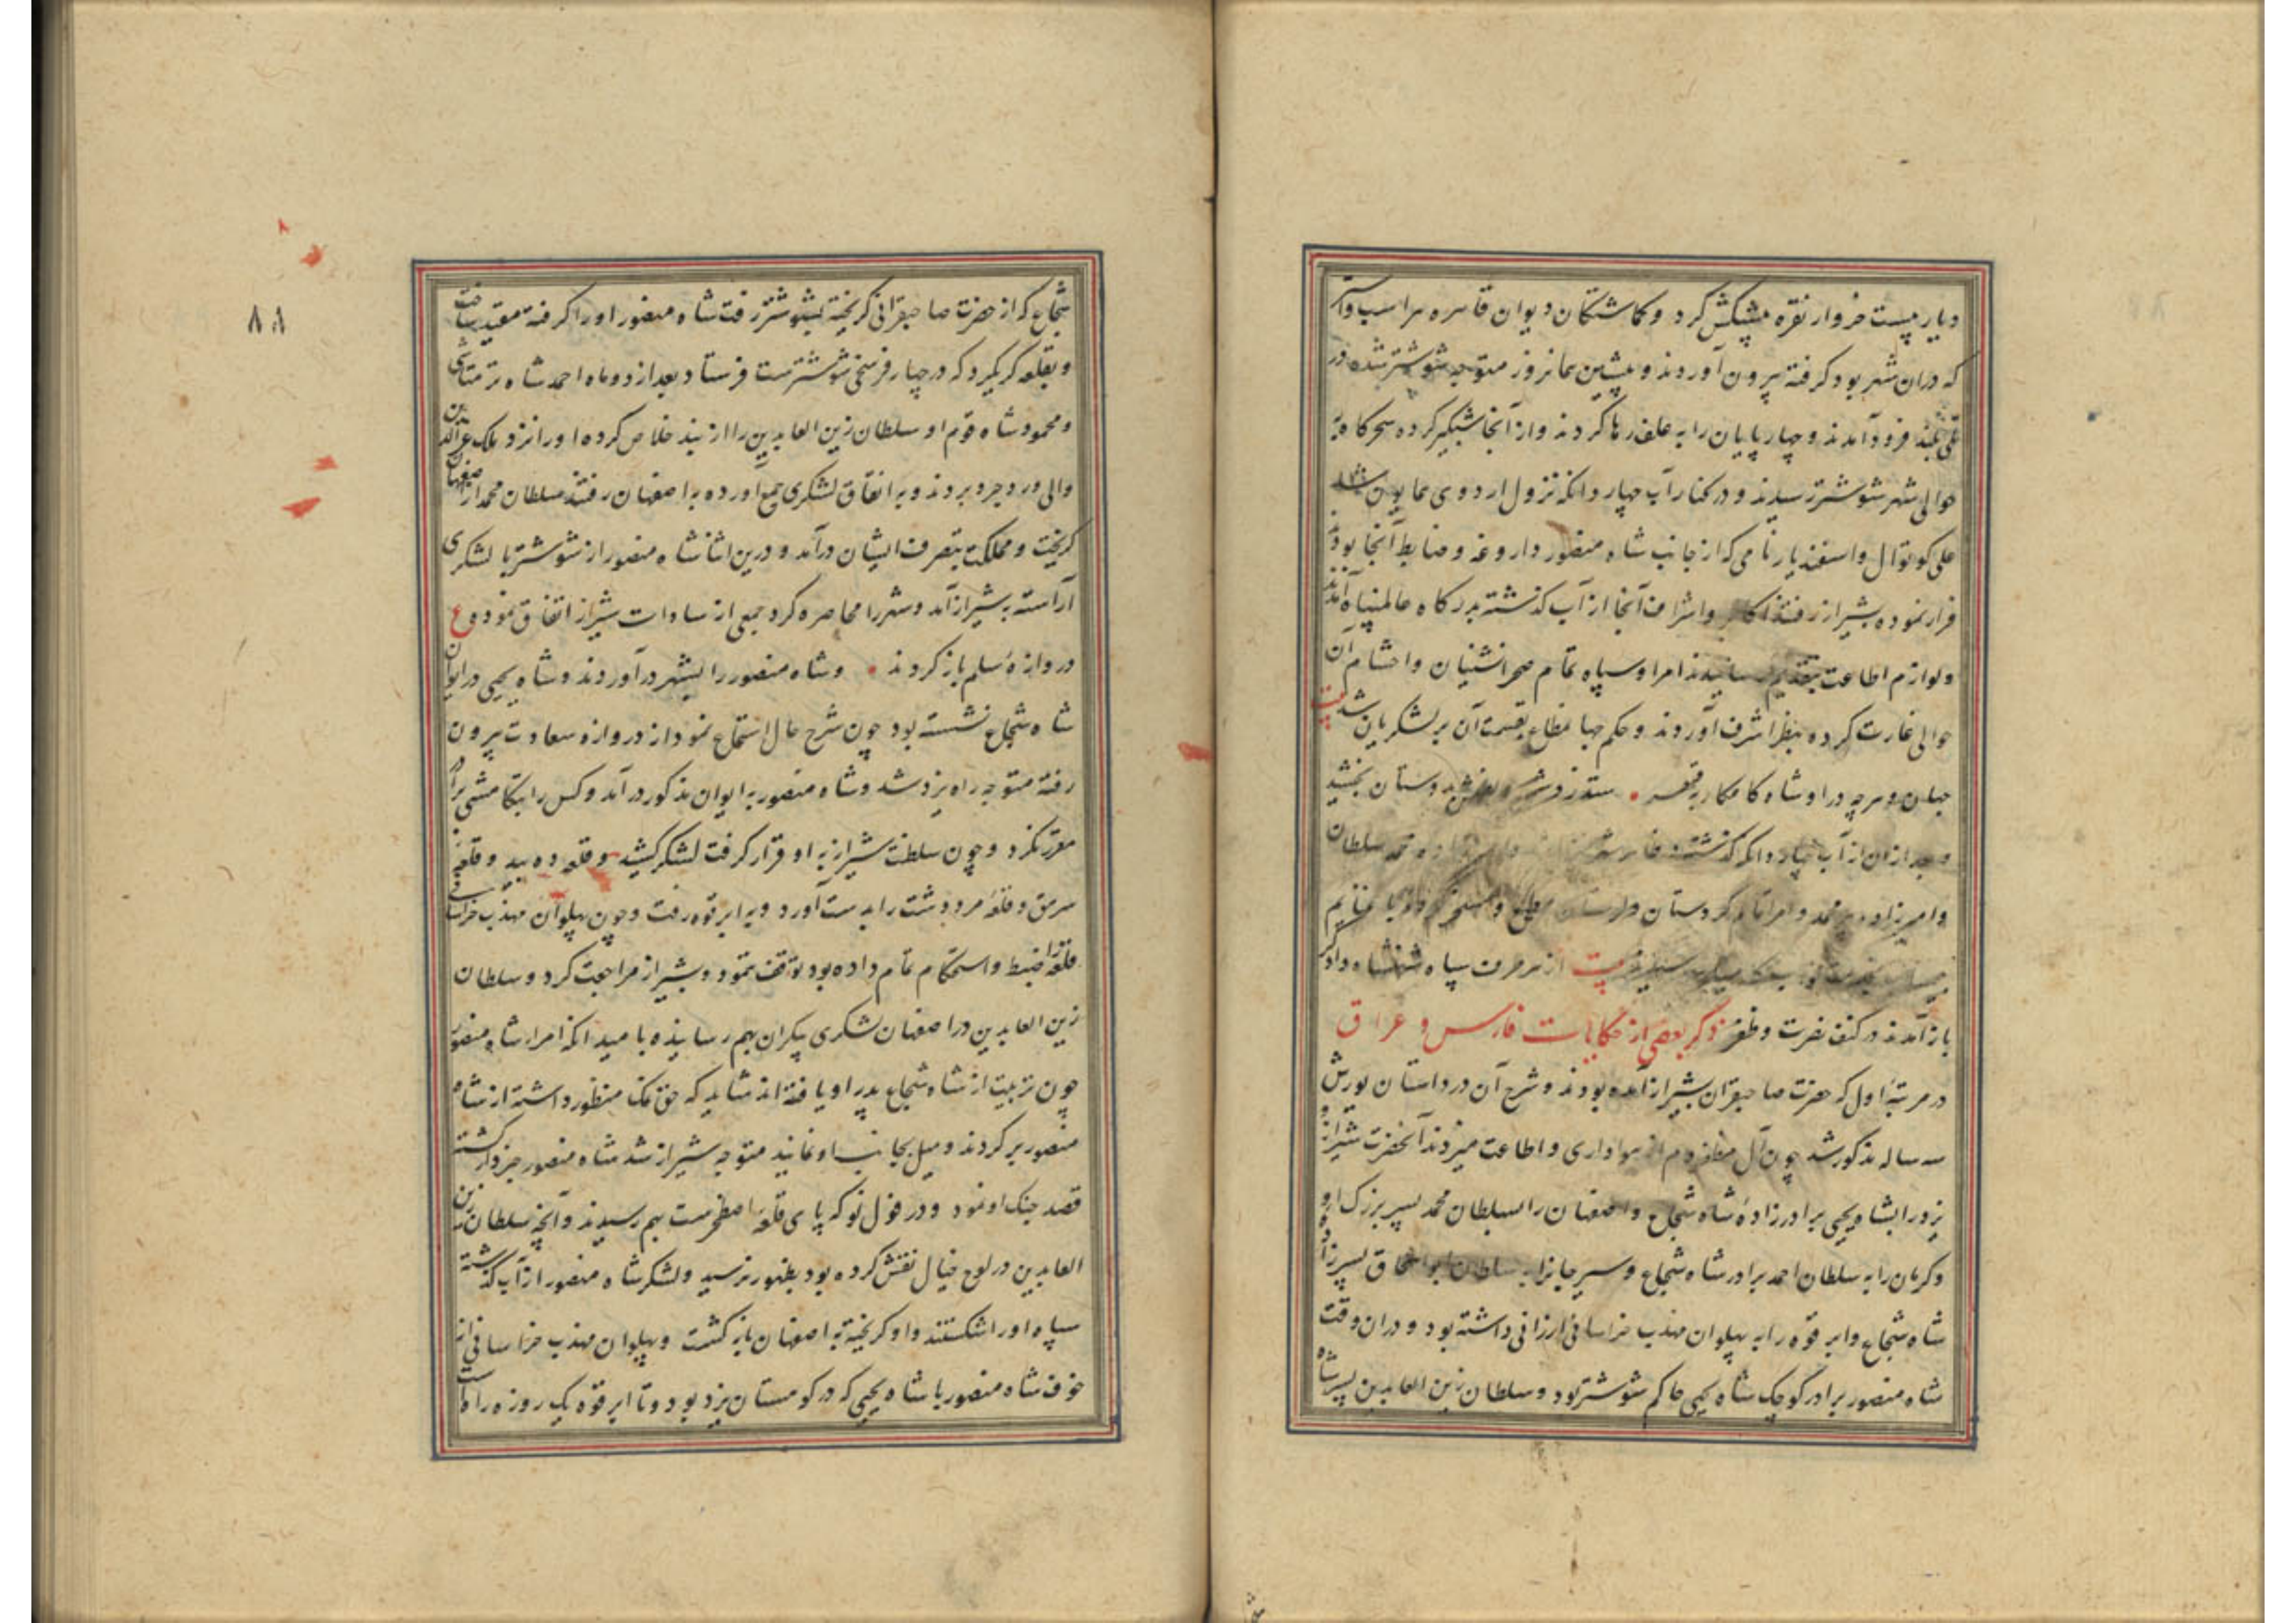 دیار بیست خروار نقره پیشکش کرد و کماشتکان دیوان قاهره هر اسب و استر
که دران شهر بود کرفته بیرون آوردند و پیشین همانروز متوجه شوشتر شده در
فرود آمدند و چهارپایان را به علف رها کردند و از آنجا شبکیر کرده سحرکاه به
حوالی شهر شوشتر رسیدند و در کنار آب چهار دانکه نزول اردوی همایون شد
علی کوتوال و اسفندیار نامی که از جانب شاه منصور داروغه و ضابط آنجا بودند
فرار نموده بشیراز رفتند اکابر و اشراف آنجا از آب کذشته بدرکاه عالمپناه آمدند
و لوازم اطاعت بتقدیم رسانیدند امرا و سپاه تمام صحرانشینان و احشام آن
حوالی غارت کرده بنظر اشرف آوردند و حکم جهانمطاع بقسمت آن بر لشکریان شد بیت
جهان و هرچه درو شاه کامکار بقهر ستد ز دشمن و بدوستان بخشید
و بعد ازان از آب چهار دانکه کذشته محمد سلطان
و امیرزاده پیر محمد و امرا تمام کردستان و لرستان غنایم
بیت از هر طرف سپاه شهنشاه دادکر
باز آمدند در کنف نصرت و ظفر ذکر بعضی از حکایات فارس و عراق
در مرتبهٔ اول که حضرت صاحبقران بشیراز آمده بودند و شرح آن در داستان یورش
سه ساله مذکور شد چون آل مظفر دم از هواداری و اطاعت میزدند آنحضرت شیراز و
یزد را بشاه یحیی برادرزادهٔ شاه شجاع و اصفهان را بسلطان محمد پسر بزرک او
و کرمان را به سلطان احمد برادر شاه شجاع و سیرجانرا به سلطان ابو اسحاق پسرزادهٔ
شاه شجاع و ابرقوه را به پهلوان مهذب خراسانی ارزانی داشته بود و دران وقت
شاه منصور برادر کوچک شاه یحیی حاکم شوشتر بود و سلطان زین العابدین پسر شاه
۸۸
شجاع که از حضرت صاحبقرانی کریخته بشوشتر رفت شاه منصور او را کرفته مقید ساخت
و بقلعه کریکرد که در چهار فرسخی شوشترست فرستاد بعد از دو ماه احمد شاه ترمتاشی
و محمود شاه قوم او سلطان زین العابدین را از بند خلاص کرده او را نزد ملک عزالدین
والی وروجرد بردند و به اتفاق لشکری جمع آورده به اصفهان رفتند سلطان محمد از اصفهان
کریخت و مملکت بتصرف ایشان درآمد و درین اثنا شاه منصور از شوشتر با لشکری
آراسته بشیراز آمد و شهر را محاصره کرد جمعی از سادات شیراز اتفاق نموده ع
دروازهٔ سلم باز کردند و شاه منصور را بشهر درآوردند و شاه یحیی در ایوان
شاه شجاع نشسته بود چون شرح حال استماع نمود از دروازه سعادت بیرون
رفته متوجه راه یزد شد و شاه منصور به ایوان مذکور درآمد و کس را بتکامشی برادر
مقرر نکرد و چون سلطنت شیراز به او قرار کرفت لشکر کشید و قلعه ده بید و قلعه
سرمق و قلعهٔ مرودشت را بدست آورد و به ابرقوه رفت و چون پهلوان مهذب خراسانی
قلعه را ضبط و استحکام تمام داده بود توقف ننمود و بشیراز مراجعت کرد و سلطان
زین العابدین در اصفهان لشکری بیکران بهم رسانیده با مید آنکه امرا شاه منصور
چون تربیت از شاه شجاع پدر او یافته اند شاید که حق نمک منظور داشته از شاه
منصور بر کردند و میل بجانب او نمایند متوجه شیراز شد شاه منصور خبردار کشته
قصد جنک او نمود و در فول نو که پای قلعهٔ اصطخرست بهم رسیدند و آنچه سلطان زین
العابدین در لوح خیال نقش کرده بود بظهور نرسید و لشکر شاه منصور از آب کذشته
سپاه او را شکستند و او کریخته به اصفهان باز کشت و پهلوان مهذب خراسانی از
خوف شاه منصور با شاه یحیی که در کوهستان یزد بود و تا ابرقوه یک روزه راه است